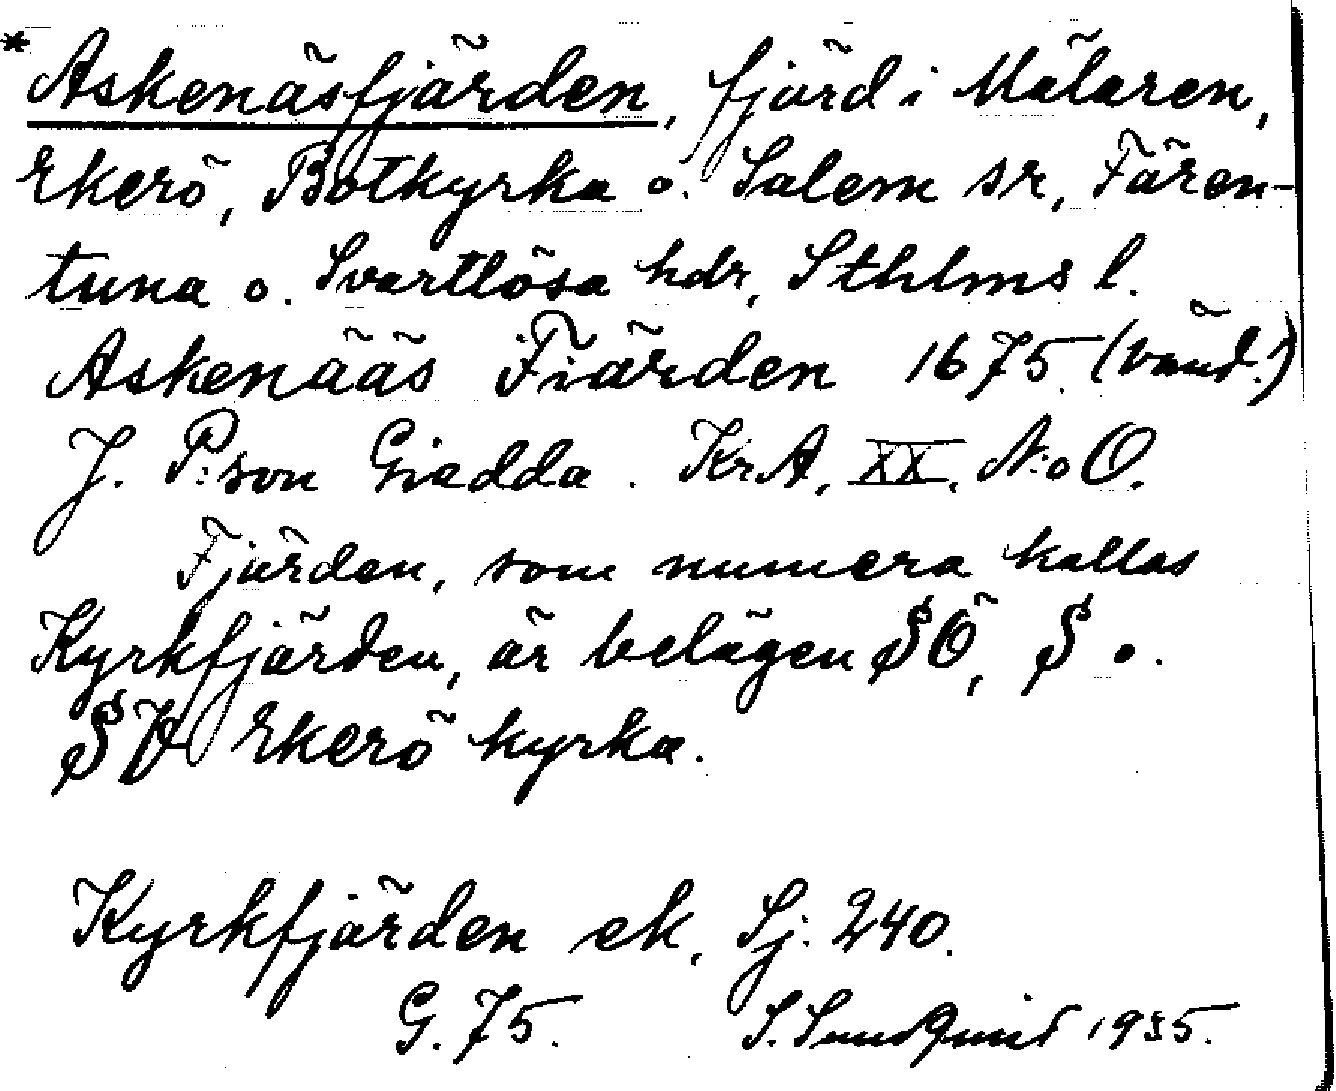 * Askenäsfjärden, fjärd i Mälaren,
Ekerö, Botkyrka o. Salem sr, Fären-
tuna o. Svartlösa hdr, Sthlms l.
Askenääs Fiärden 1675 (
J. P:son Giädda. KrA, XX, N:o O.
Fjärden, som numera kallas
Kyrkfjärden, är belägen SÖ, S o.
SV Ekerö kyrka.
Kyrkfjärden ek, Sj. 240.
G. 75. S. Sundquist 1935.